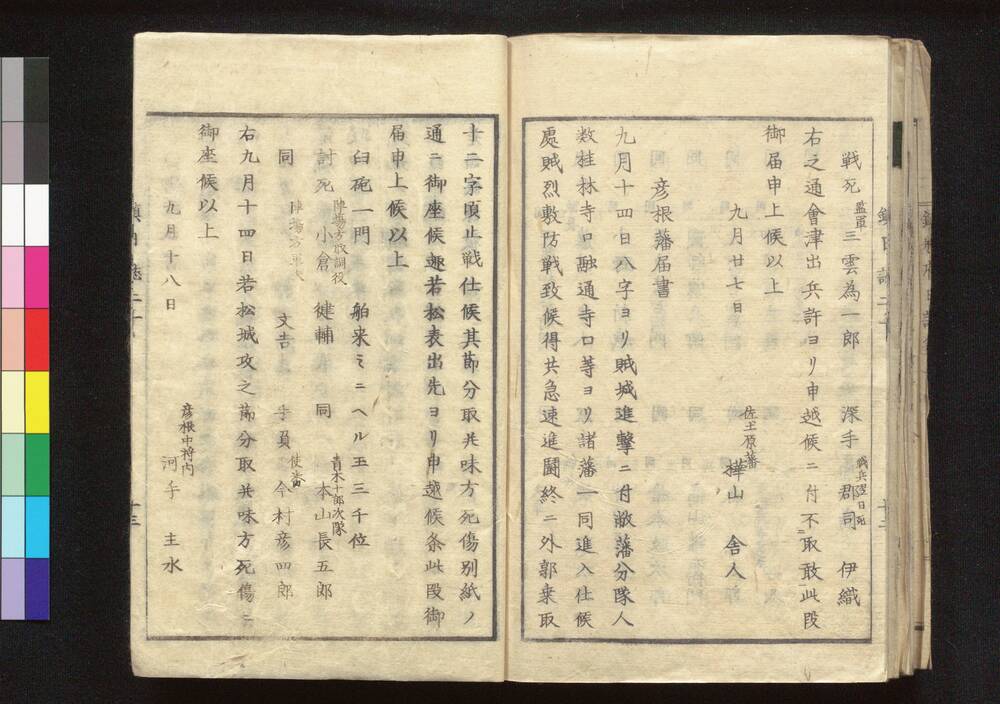 戦死 監軍 三雲為一郎 深手 戦兵翌日死 郡司 伊織
右之通會津出兵許ヨリ申越候ニ付不取敢此段
御届申上候以上
九月廿七日
佐土原藩
樺山 舎人
彦根藩届書
九月十四日八字ヨリ賊城進撃ニ付敝藩分隊人
数桂林寺口融通寺口等ヨリ諸藩一同進入仕候
處賊烈敷防戦致候得共急速進闘終ニ外郭乗取
十二字頃止戦仕候其節分取并味方死傷別紙ノ
通ニ御座候趣若松表出先ヨリ申越候条此段御
届申上候以上
臼砲一門 舶来ミニヘル五三千位
討死 陣場方取調役 小倉 健輔 同 青木十郎次隊 本山長五郎
同 文吉 手負 使番 今村彦四郎
右九月十四日若松城攻之節分取并味方死傷ニ
御座候以上
九月十八日
彦根中将内
河手 主水